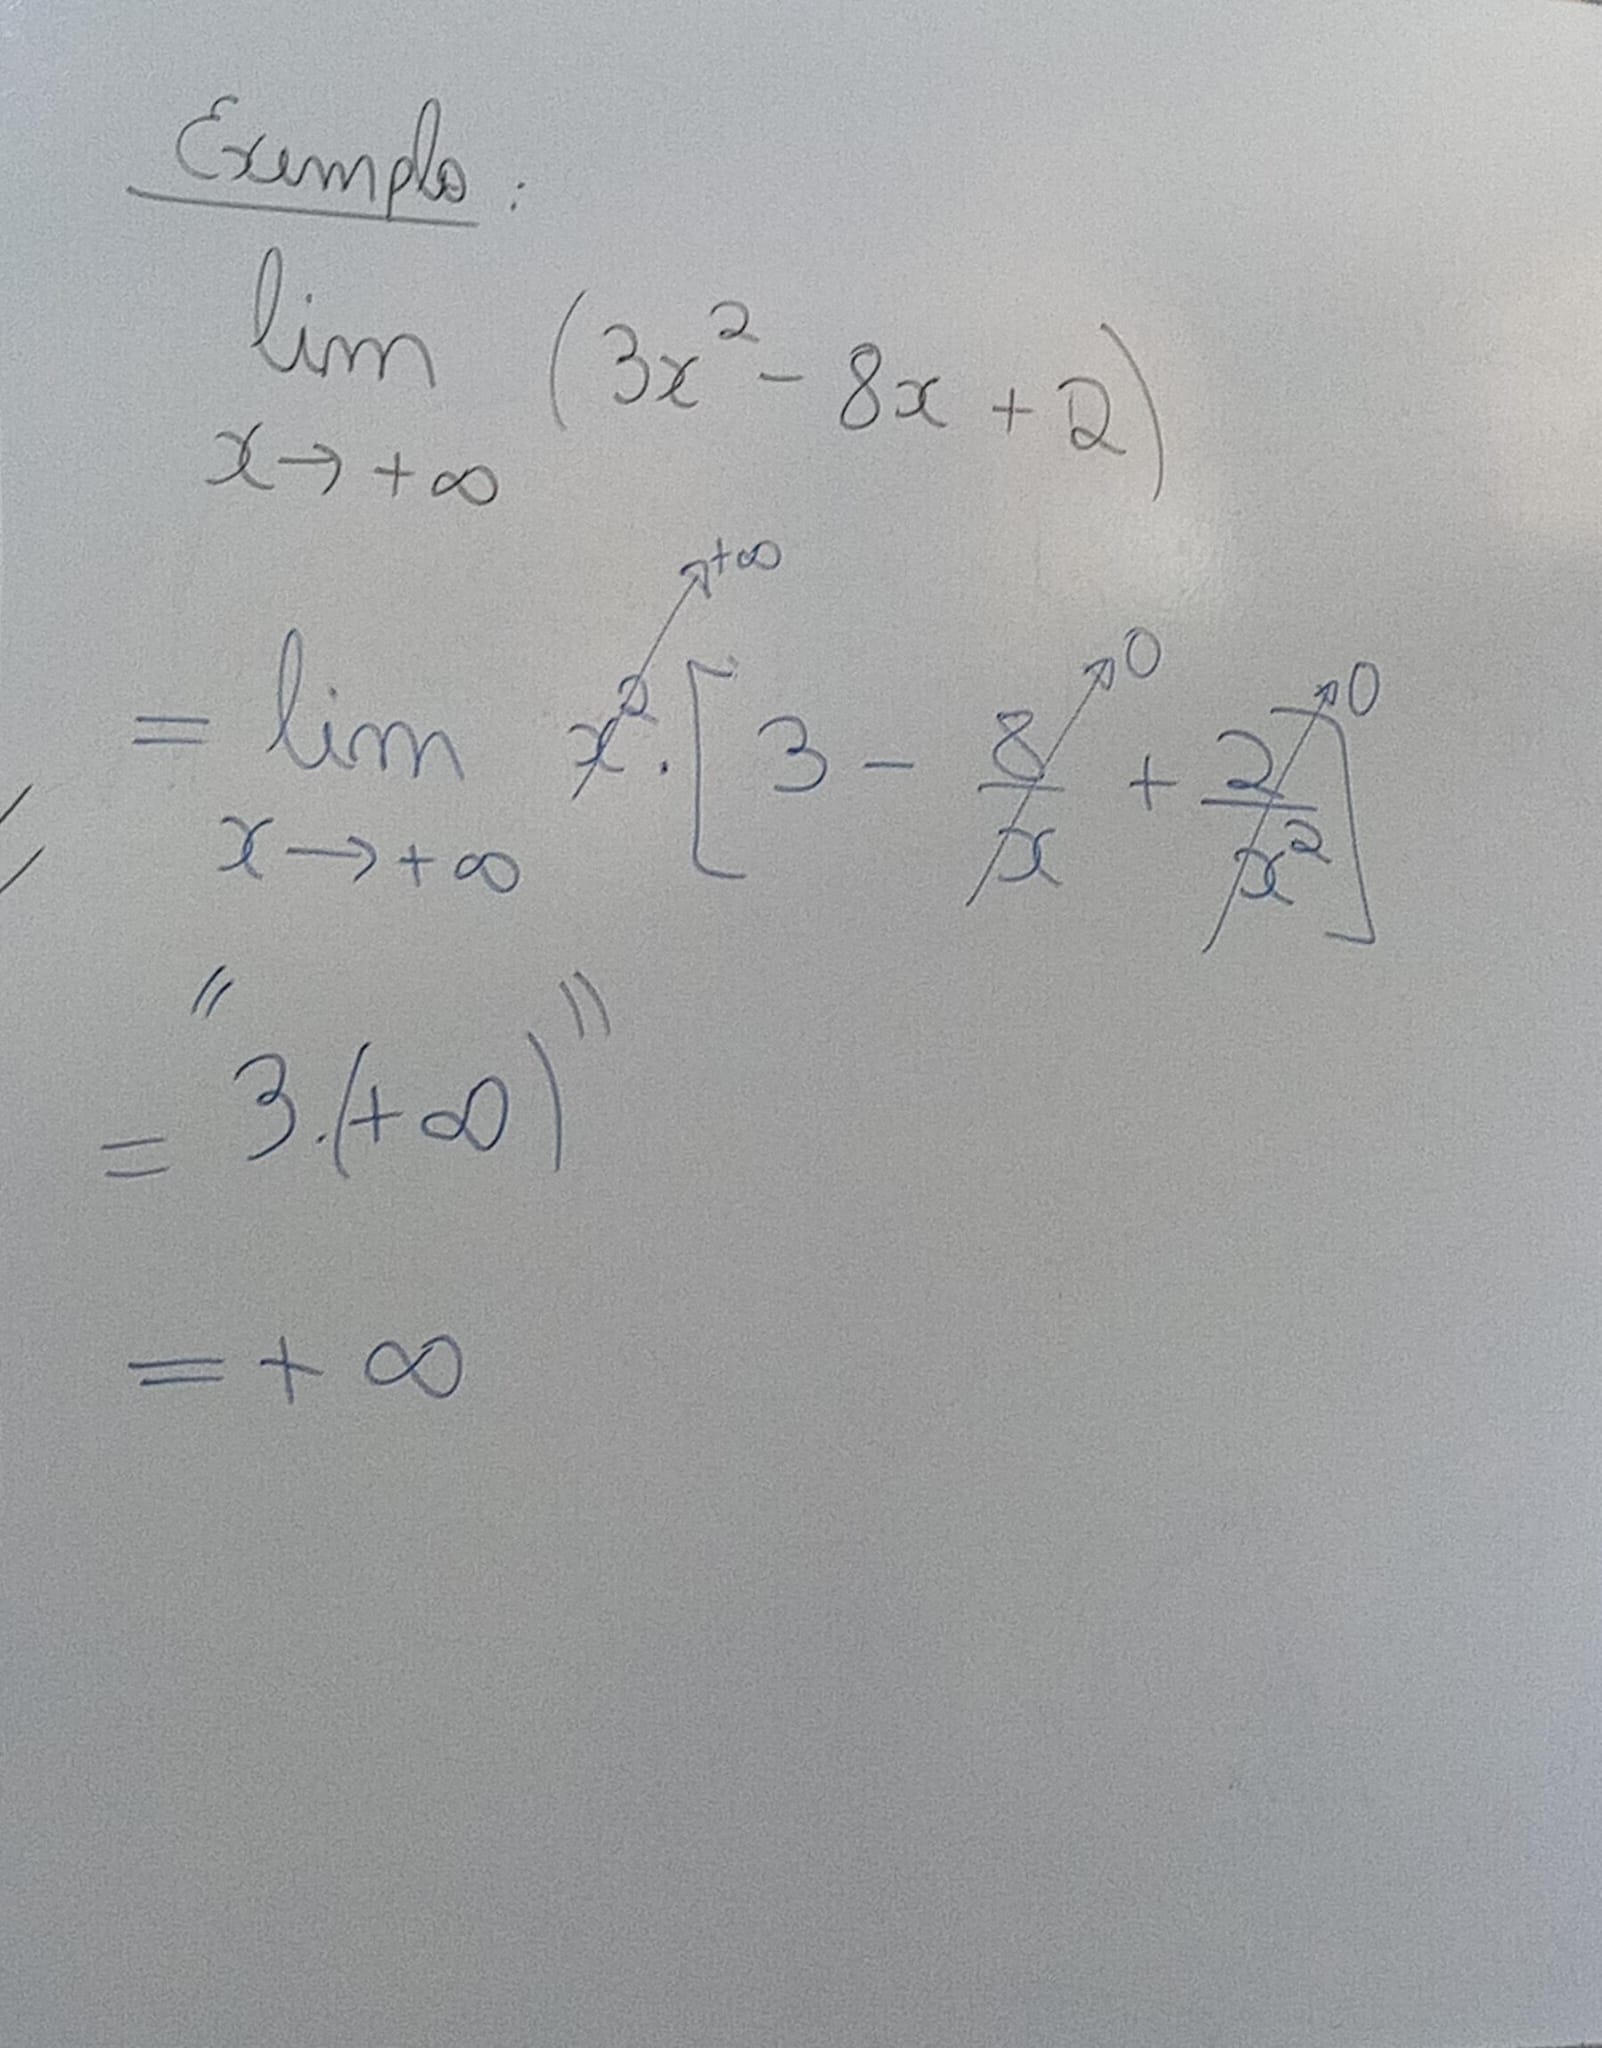 Exemplo:
lim (3x² - 8x + 2)
x → +∞
= lim x²↗+∞ · [3 - 8/x↗0 + 2/x²↗0]
x → +∞
= "3.(+∞)"
= + ∞